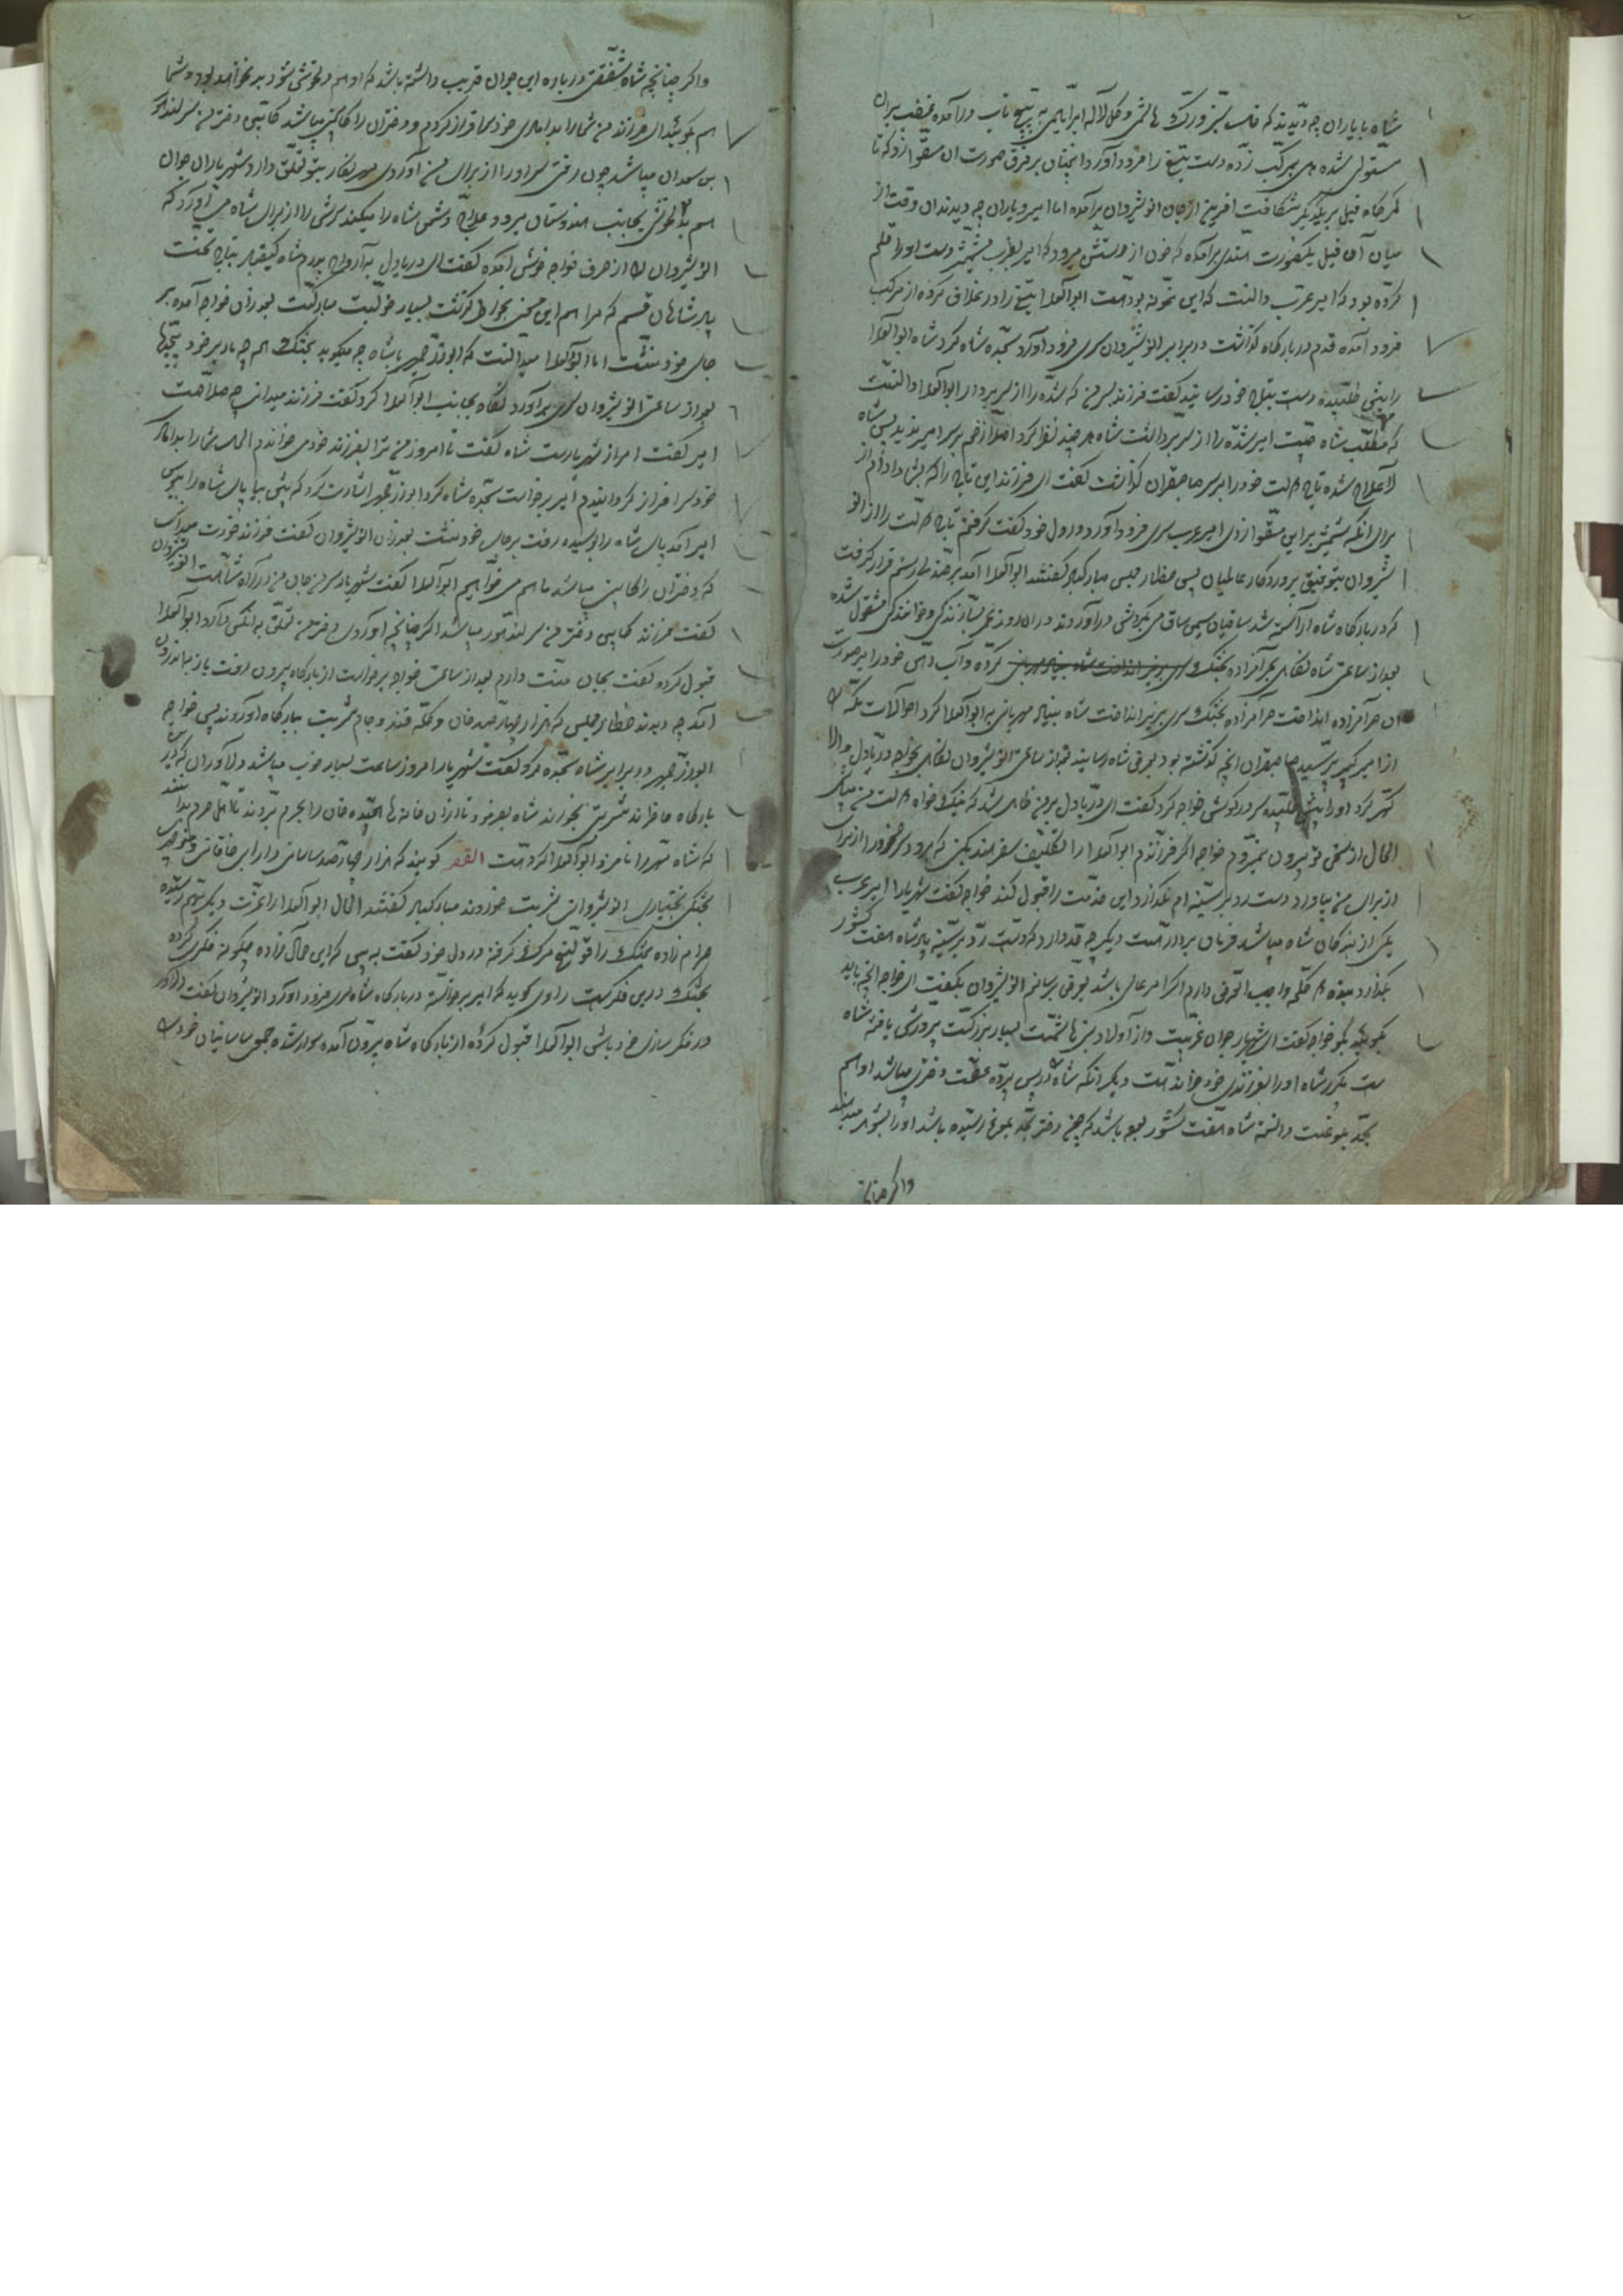 شاه با یاران چه دیدند که قلب تیز و رنگ هاشمی و کلاله ابراهیمی به پیچ تاب درآمده غضب بر آن
مستولی شده هی بمرکب زده دست تیغ را فرود آورد آنچنان بر فرق صورت آن سقو از و که تا
کمرگاه فیل بر یکدیگر شکافت آفرین از جان انوشیروان برآمده اما امیر و یاران چه دیدند آن وقت از
میان آن فیل یک صورت هندی برآمده که خون از دستش میرود که امیر بضرب شمشیر دست او را قلم
کرده بود که امیر عرب دانست که این نمونه بوده است ابوالعلا تیغ را در غلاف کرده از مرکب
فرود آمده قدم در بارگاه گذاشت در برابر انوشیروان سر فرود آورد سجده شاه کرد شاه ابوالعلا
را پیش طلبیده دست بتاج خود رسانید گفت فرزند پس من که شده را از سر بردار ابوالعلا دانست
که مطلب شاه چیست امیر شده را از سر برداشت شاه هر چند نظر کرد اصلا زخم بر سر امیر ندید پس شاه
لاعلاج شده تاج دولت خود را بر سر صاحبقران گذاشت گفت ای فرزند این تاج را که بشما دادم از
برای آنکه شمشیر بر این سقو ازدی امیر عرب سر فرود آورد و در دل خود گفت گرفتم تاج دولت را از انو
شیروان بتوفیق پروردگار عالمیان پس حضار مجلس مبارکباد گفتند ابوالعلا آمد بر صندلی رستم قرار گرفت
که در بارگاه شاه آراسته شد ساقیان سیمین ساق می بگردش درآوردند در آن روز می بسازندگی و خوانندگی مشغول شده
بعد از ساعتی شاه نگاهی بحرامزاده بختک کرده و آب دهن خود را بر صورت
آن حرامزاده انداخت حرامزاده بختک سر بزیر انداخت شاه بنیاد مهربانی به ابوالعلا کرد احوالات مکه را
از امیر کبیر پرسید صاحبقران آنچه گذشته بود بعرض شاه رسانید بعد از ساعتی انوشیروان نگاهی بخواجه دریادل والا
گهر کرد او را پیش طلبیده سر در گوش خواجه کرد گفت ای دریادل بر من ظاهر شد که نیک خواه دولت من میباشی
الحال از سخن تو بیرون نمیروم خواجه اگر فرزندم ابوالعلا را تکلیف سفر هند بکنی که برود سر لندهور را از برای
از برای من بیاورد دست رد بر سینه ام نگذارد این خدمت را قبول کند خواجه گفت شهریارا امیر عرب
یکی از بندگان شاه میباشد فرمان بردار است دیگر چه قد دارد که دست رد بر سینه پادشاه هفت کشور
بگذارد بنده کلمه واجب العرضی دارم اگر امر عالی باشد بعرض رسانم انوشیروان بگفت ای خواجه آنچه باید
بگوئید بگو خواجه گفت ای شهریار جوان غریبیست و از اولاد بنی هاشمست بسیار بزرگست پرورش یافته شاه
است مکرر شاه او را بفرزندی خود خوانده است دیگر آنکه شاه را در پس پرده عفت دختری میباشد او هم
بحد بلوغست دانسته شاه هفت کشور بوده باشد که چون دختر بحد بلوغ رسیده باشد او را بشوهر میدهند
و اگر چنانچه
و اگر چنانچه شاه شفقتی درباره این جوان غریب داشته باشد که او هم دلخوشی شود بد نخواهد بود و شما
هم بگوئید ای فرزند من شما را بدامادی خود سرافراز کردم و دختران را کابین میباشد کابین دختر من سر لندهور
بن سعدان میباشد چون رفتی سر او را از برای من آوردی مهرنگار بتو تعلق دارد شهریار آن جوان
هم بدلخوشی بجانب هندوستان میرود علاج دشمن شاه را میکند سرش را از برای شاه می آورد که
انوشیروان را از حرف خواجه خوش آمده گفت ای دریادل به ارواح پدرم شاه کیقباد بتاج تخت
پادشاهان قسم که مرا هم این سخن بخاطر گذشت بسیار خوبست مبارکست بعد از آن خواجه آمده بر
جای خود نشست اما ابوالعلا میدانست که ابوذرجمهر با شاه چه میگوید بختک هم چه مار بر خود پیچید
بعد از ساعتی انوشیروان سر برآورد نگاه بجانب ابوالعلا کرد گفت فرزند میدانی چه صلاحست
امیر گفت امر از شهریارست شاه گفت تا امروز من ترا بفرزند خود می خواندم الحال شما را بداماد
خود سرافراز گردانیدم امیر برخاست سجده شاه کرد ابوذرجمهر اشارت کرد که پیش بیا پای شاه را ببوس
امیر آمد پای شاه را بوسیده رفت بر جای خود نشست بعد از آن انوشیروان گفت فرزند خودت میدانی
که دختران را کابین میباشد ما هم می خواهیم ابوالعلا گفت شهریار سر من جان من در راه شماست انوشیروان
گفت فرزند کابین دختر من سر لندهور میباشد اگر چنانچه آوردی دختر من تعلق به آنکس دارد ابوالعلا
قبول کرده گفت بجان منت دارم بعد از ساعتی خواجه برخواست از بارگاه بیرون رفت باز باندرون
آمد چه دیدند حضار مجلس که هزار چهارصد خان و کله قند و جام شربت ببارگاه آوردند پس خواجه
ابوذرجمهر در برابر شاه سجده کرد گفت شهریارا امروز ساعت بسیار خوب میباشد دلاوران که در
بارگاه حاضرند شربتی بخورند شاه بفرمود تا از آن خانه ها هفتصد خان را بحرم بردند تا اهل حرم بدانند
که شاه مهر را نامزد ابوالعلا کرده است القصه گویند که هزار چهارصد ساسانی دارابی خاقانی
بختکی بختیاری انوشیروانی شربت خوردند مبارکباد گفتند الحال ابوالعلا را عزت دیگر بهم رسیده
حرام زاده بختک را قولنج مرگ گرفته در دل خود گفت به بین که این حمال زاده چگونه فکری کرده
بختک درین فکرست راوی گوید که امیر برخواسته در بارگاه شاه سر فرود آورد انوشیروان گفت دلاور
در فکر سازی خود باش ابوالعلا قبول کرده از بارگاه شاه بیرون آمده سوار شده جمعی ساسانیان خود را